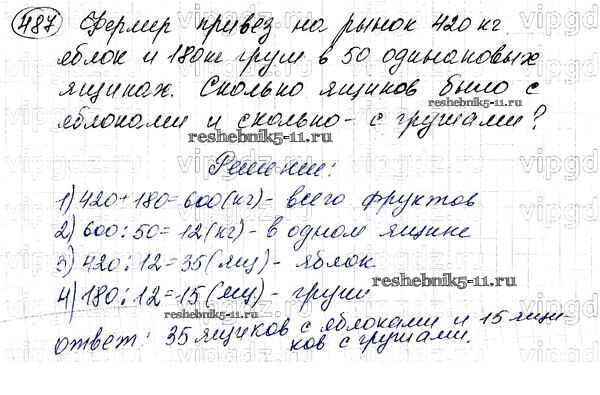 487 Фермер привез на рынок 420 кг
яблок и 180 кг груш в 50 одинаковых
ящиках. Сколько ящиков было с
яблоками и сколько - с грушами?
reshebnik5-11.ru
reshebnik5-11.ru
Решение:
1) 420+180=600(кг)- всего фруктов
2) 600:50=12(кг)- в одном ящике
3) 420:12=35(ящ)- яблок
reshebnik5-11.ru
4) 180:12=15(ящ)- груши
reshebnik5-11.ru
ответ: 35 ящиков с яблоками и 15 ящи-
ков с грушами.